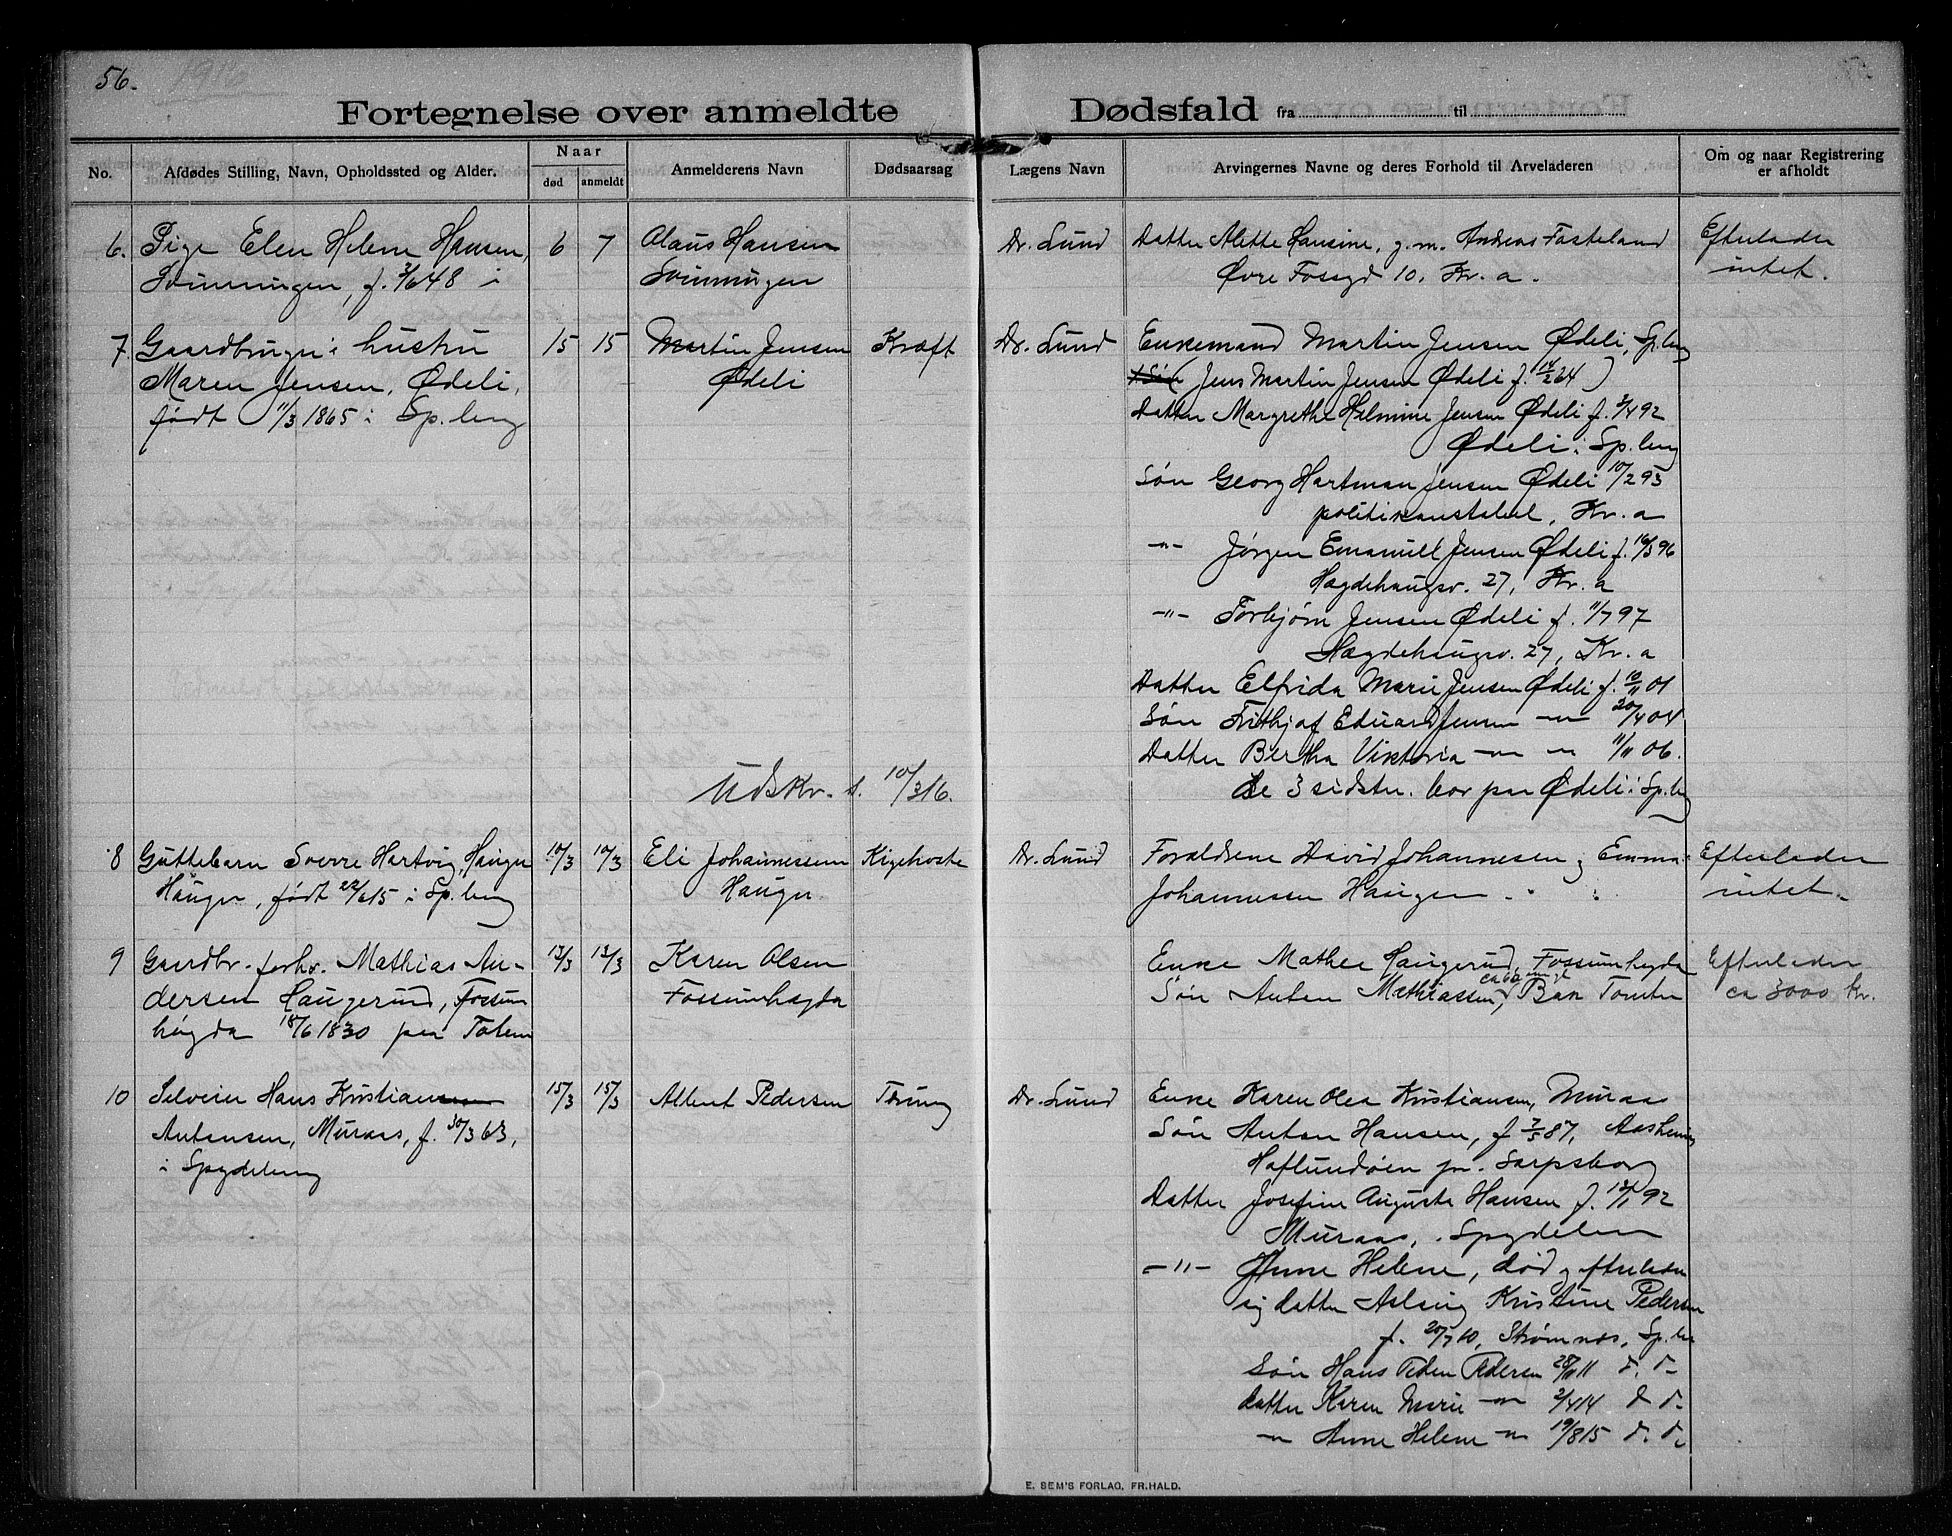 56. 1916
Fortegnelse over anmeldte Dødsfald fra til
No.
Afdødes Stilling, Navn, Opholdssted og Alder.
Naar
død anmeldt
Anmelderens Navn
Dødsaarsag
Lægens Navn
Arvingernes Navne og deres Forhold til Arveladeren
Om og naar Registrering
er afholdt
6. Pige Elen Helene Hansen, 6 7 Olaus Hansen Dr. Lund Datter Alette Hansine, g.m. Andreas Fosteland Efterlader
Svinningen, f. 48 i Svinningen Øvre Fossgd 10. Kr.a. intet.
7. Gaardbruger hustru 15 15 Martin Jensen Kræft Dr. Lund Enkemand Martin Jensen Ødeli, Sp.berg
Maren Jensen, Ødeli, Ødeli Søn (Jens Martin Jensen Ødeli f. 64)
født 11/3 1865 i Sp.berg Datter Margrethe Helmine Jensen Ødeli f. 92
Ødeli i Sp.berg
Søn Georg Hartman Jensen Ødeli 10/2 95
politikonstabel, Kr.a
-"- Jørgen Emanuell Jensen Ødeli f. 16/3 96
Hægdehaugsv. 27, Kr.a
-"- Torbjørn Jensen Ødeli f. 11/7 97
Hægdehaugsv. 27, Kr.a
Datter Elfrida Marie Jensen Ødeli f. 10/11 01
Søn Frithjof Eduard Jensen -"- 20/4 04
Datter Bertha Viktoria -"- -"- 11/11 06.
Udskr. s. 10/3 16. de 3 sidste bor paa Ødeli i Sp.berg
8 Guttebarn Sverre Hartvig, Haugen 10/3 10/3 Eli Johannessen Kigehoste Dr. Lund Forældrene David Johannesen og Emma Efterlader
Haugen, født 22/6 15 i Sp.berg Haugen Johannessen Haugen intet.
9 Gaardbr. forhv. Mathias An- 13/3 13/3 Karen Olsen Enke Mathea Haugerud, Fossumhøgda Efterlader
dersen Haugerud, Fossum Fossumhøgda Søn Anton Mathiassen, Tomter ca 3000 Kr.
høgda 18/6 1830 paa Toten
10 Selveier Hans Kristiansen 15/3 15/3 Albert Pedersen Tæring Dr. Lund Enke Karen Olea Kristiansen, Muraas
Antonsen, Muraas, f. 30/3 63, Søn Anton Hansen, f. 7/5 87,
i Spydeberg Haflundsøen pr. Sarpsborg
Datter Josefine Auguste Hansen f. 12/1 92
Muraas, Spydeberg
-"- Anne Helene, død og efterlader
sig datter Aslaug Kristine Pedersen
f. 20/7 10, Strømnes, Sp.berg
Søn Hans Peder Pedersen 28/11 11 d. d.
datter Karen Marie -"- 2/4 14 d d.
-"- Anne Helene -"- 19/8 15 d. d.
E. SEM'S FORLAG, FR.HALD.